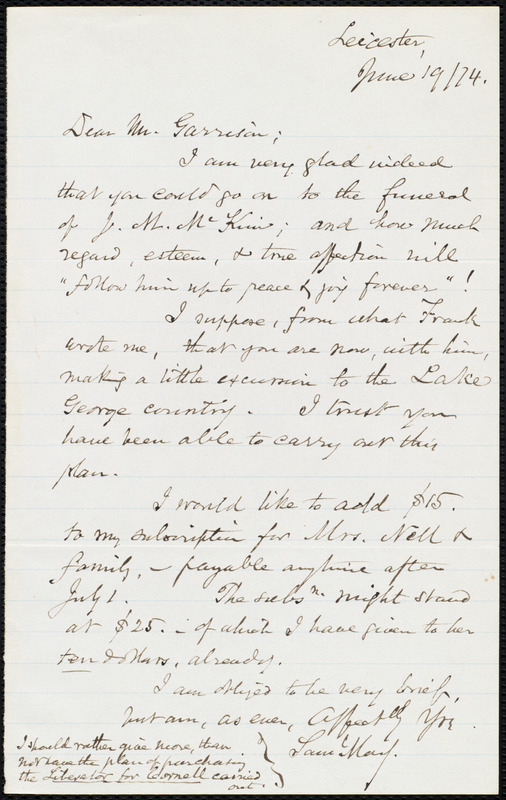 Leicester,
June 19/74.
Dear Mr. Garrison;
I am very glad indeed
that you could go on to the funeral
of J. M. McKim; and how much
regard, esteem, & true affection will
"follow him up to peace & joy forever"!
I suppose, from what Frank
wrote me, that you are now, with him,
making a little excursion to the Lake
George country. I trust you
have been able to carry out this
plan.
I would like to add $15.
to my subscription for Mrs. Nell &
family, – payable anytime after
July 1. The subsn. might stand
at $25. – of which I have given to her
ten dollars, already.
I am obliged to be very brief,
but am, as ever, Affectly Yrs.
Saml. May.
I should rather give more, than
not have the plan of purchasing
the Liberator for Cornell carried
out.